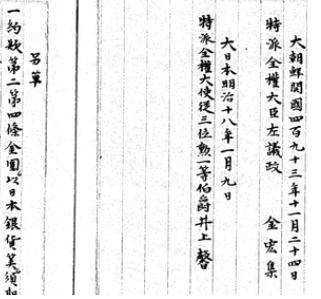 大朝鮮開國四百九十三年十一月二十四日
特派全權大臣左議政 金宏集
大日本明治十八年一月九日
特派全權大使從三位勳一等伯爵井上馨
另單
一約款第二第四條金圓以日本銀貨算須